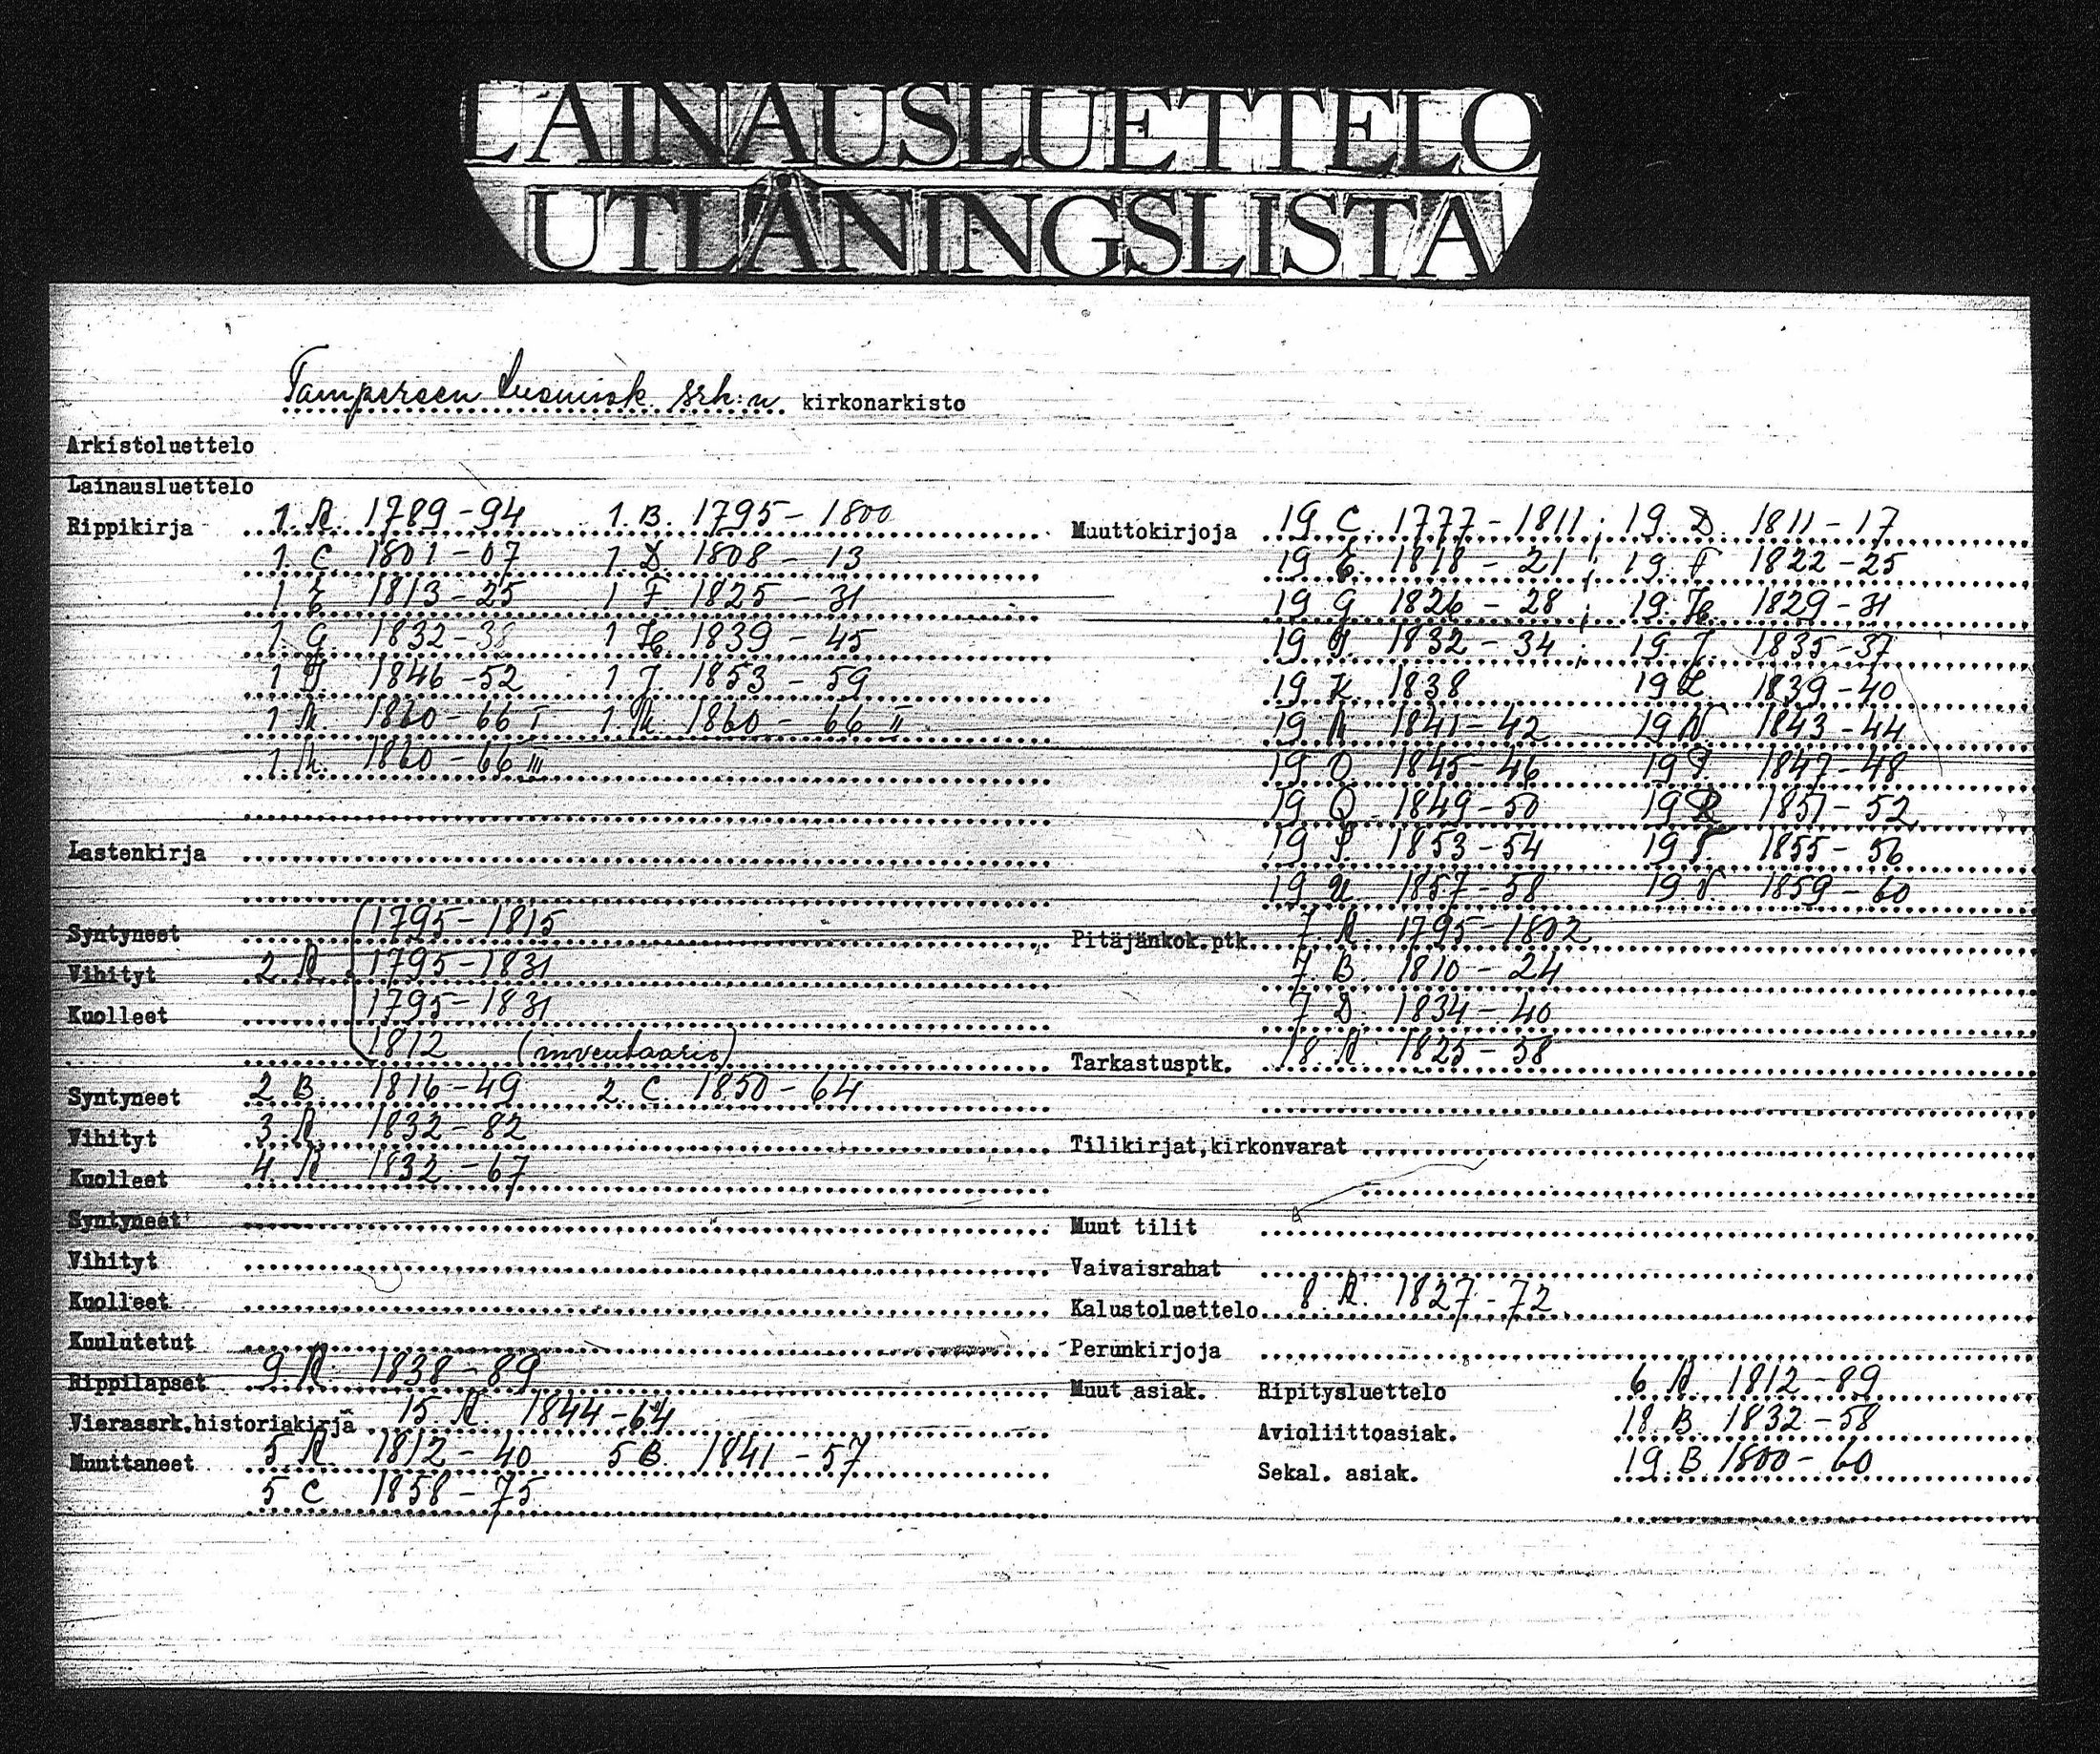 LAINAUSLUETTELO
UTLÅNINGSLISTA
Tampereen tuomiok. srk:n kirkonarkisto
Arkistoluettelo
Lainausluettelo
Rippikirja 1. A. 1789-94 1. B. 1795-1800
1. C. 1801-07 1. D. 1808-13
1 E 1813-25 1 F 1825-31
1. G. 1832-38 1 H 1839-45
1 I. 1846-52 1 J. 1853-59
1 K. 1860-66 I 1. K. 1860-66 II
1. K. 1860-66 III
Lastenkirja
Syntyneet 1795-1815
Vihityt 2. A. 1795-1831
Kuolleet 1795-1831
1812 (inventaario)
Syntyneet 2 B. 1816-49 2. C. 1850-64
Vihityt 3. A. 1832-82
Kuolleet 4. A 1832-67
Syntyneet
Vihityt
Kuolleet
Kuulutetut
Rippilapset 9. A. 1838-89
Vierassrk.historiakirja 15. A. 1844-64
Muuttaneet 5. A. 1812-40 5 B. 1841-57
5 C 1858-75
Muuttokirjoja 19 C. 1777-1811; 19. D. 1811-17
19 E. 1818-21; 19. F 1822-25
19 G. 1826-28; 19. H. 1829-31
19 I. 1832-34; 19. J. 1835-37
19 K. 1838 19 L. 1839-40
19 M 1841-42 19 N 1843-44
19 O. 1845-46 19 P. 1847-48
19 Q 1849-50 19 R 1851-52
19 S. 1853-54 19 T. 1855-56
19 U 1857-58 19 V. 1859-60
Pitäjänkok.ptk. 7. A. 1795-1802
7. B. 1810-24
7 D. 1834-40
Tarkastusptk. 18. A. 1825-58
Tilikirjat,kirkonvarat
Muut tilit
Vaivaisrahat
Kalustoluettelo 8. A. 1827-72
Perunkirjoja
Muut asiak. Ripitysluettelo 6 A. 1812-89
Avioliittoasiak. 18. B. 1832-58
Sekal. asiak. 19. B 1800-60